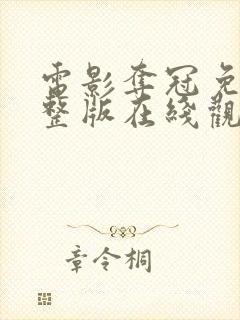 電影奪冠免
整版在綫觀
章令桐